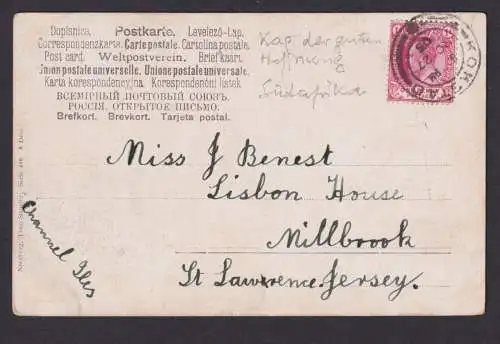 Dopisnica. Postkarte. Levelező-Lap.
Correspondenzkarta. Carte postale. Cartolina postale.
Post card. Weltpostverein. Brief kaart.
Union postale universelle. Unione postale universale.
Karta korespondencyjna. Korespondenční lístek
ВСЕМІРНЫЙ ПОЧТОВЫЙ СОЮЗЪ.
РОССІЯ. ОТКРЫТОЕ ПИСЬМО.
Brefkort. Brevkort. Tarjeta postal.
Kap der guten
Hoffnung
Südafrika
KOKSTAD
Miss J Benest
Lisbon House
Millbrook
St Lawrence. Jersey.
Channel Iles